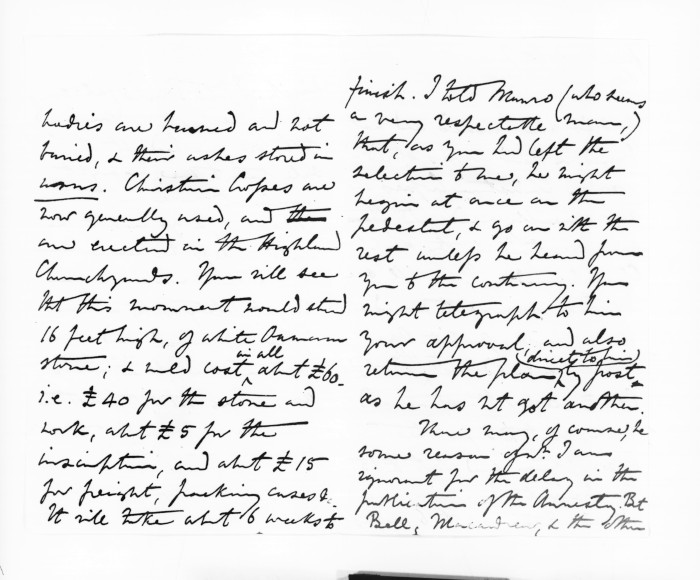 bodies are burned and not
buried, & their ashes stored in
urns. Christian Crosses are
now generally used, and the
are erected in the Highland
Churchyards. You will see
tht this monument would stand
16 feet high, of white
stone; & would cost in all abt £60 -
i.e. £40 for the stone and
work, abt £5 for the
inscription, and abt £15
for freight, packing cases &.
It will take abt 6 weeks to
finish. I told Munro (who seems
a very respectable man,)
that, as you had left the
selection to me, he might
begin at once on the
pedestal, & go on with the
rest unless he heard from
you to the contrary. You
might telegraph to him
your approval, and also
return the plan (direct to him) by post -
as he has not got another.
There may, of course, be
some reason of wh. I am
ignorant for the delay in the
publication of the Amnesty. But
Bell, Macandrew, & the other